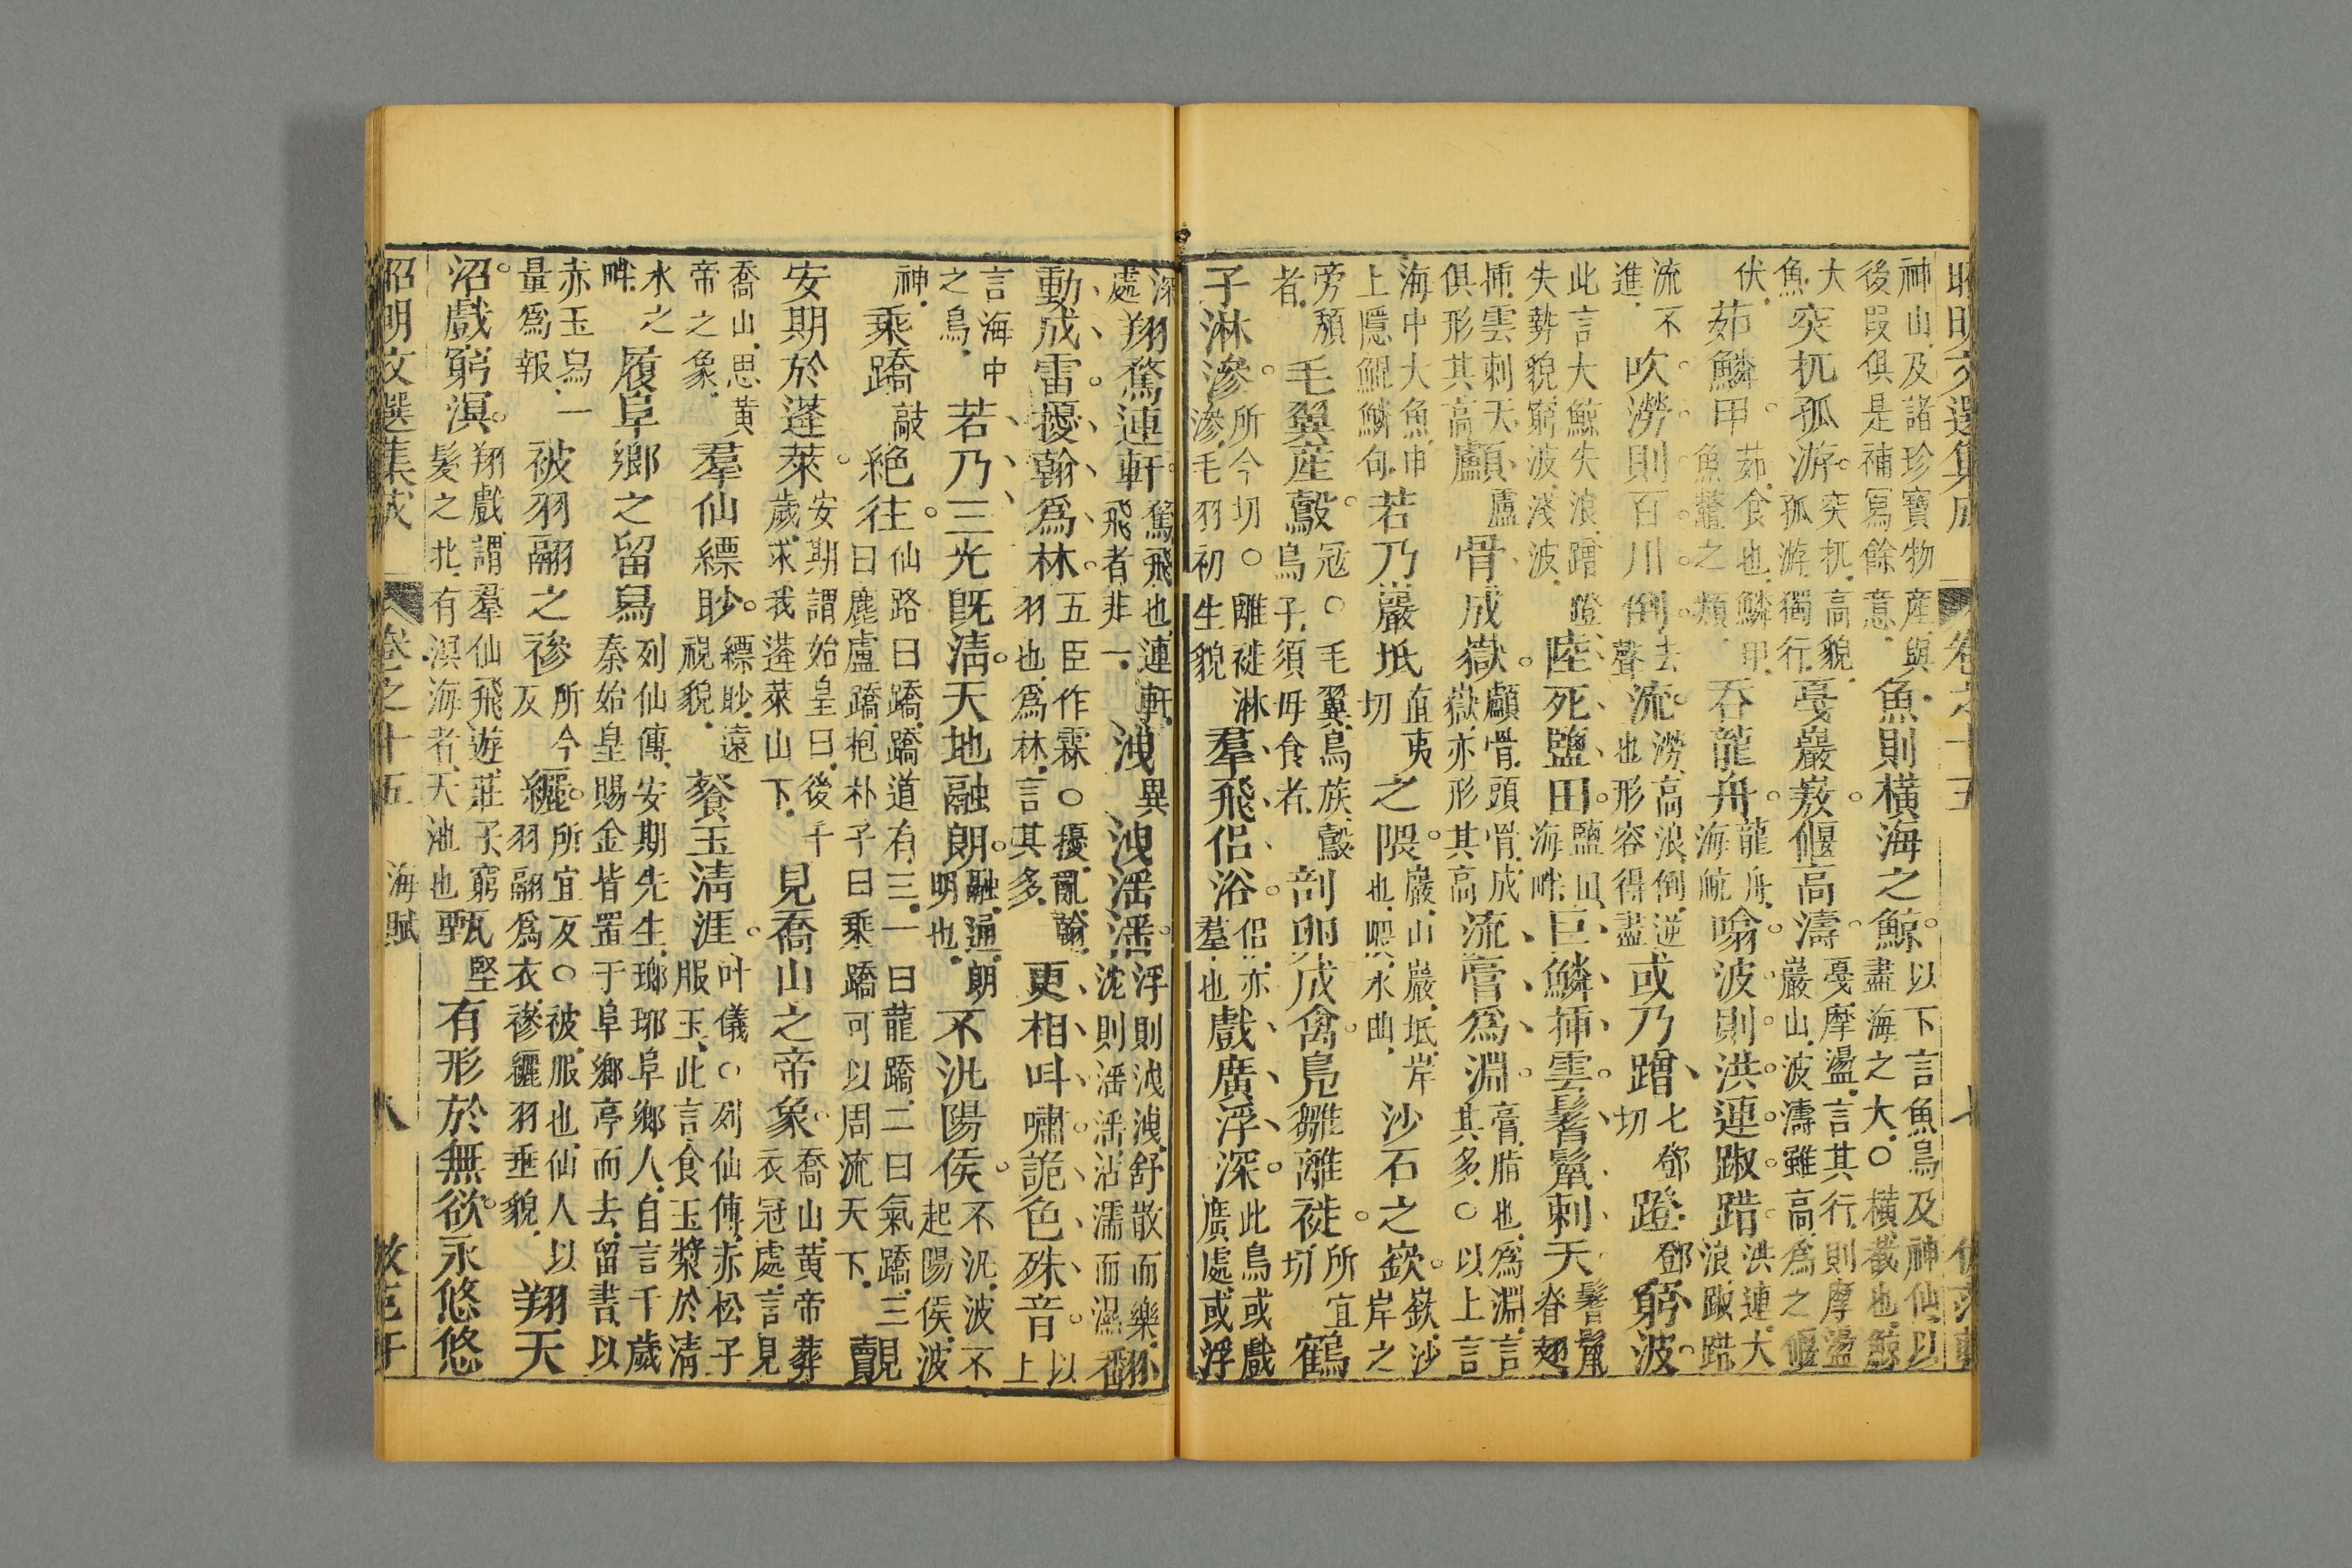 昭明文選集成 卷之十五 七
神山及諸珍寶物產與後叚俱是補寫餘意魚則橫海之鯨以下言魚鳥及神仙以盡海之大○橫截也鯨
大魚突扤孤游突扤高貌孤游獨行戛巖嶅偃高濤戛摩盪言其行則摩盪巖山波濤雖高為之偃
伏茹鱗甲茹食也鱗甲魚鼈之類吞龍舟龍舟海舶噏波則洪連踧踖洪連大浪踧踖
流不進吹澇則百川倒去聲流澇高浪倒逆也形容得盡或乃蹭七鄧切蹬鄧窮波
此言大鯨失浪蹭蹬失勢貌窮波淺波陸死鹽田鹽田海畔巨鱗揷雲鬐鬣刺天鬐鬣脊翅
揷雲刺天俱形其高顱盧骨成嶽顱骨頭骨成嶽亦形其高流膏爲淵膏脂也爲淵言其多○以上言
海中大魚申上隱鯤鱗句若乃巖坻直夷切之隈巖山巖坻岸也隈水曲沙石之嶔嶔沙岸之
旁頹者毛翼產鷇冦○毛翼鳥族鷇鳥子須母食者剖卵成禽鳧雛離褷所宜切鶴
子淋滲所今切○離褷淋滲毛羽初生貌羣飛侶浴侶亦羣也戲廣浮深此鳥或戲廣處或浮
深處翔鶩連軒鶩飛也連軒飛者非一洩異洩滛滛浮則洩洩舒散而樂沈則滛滛沾濡而濕翻
動成雷擾翰爲林五臣作霖○擾亂翰羽也爲林言其多更相叫嘯詭色殊音以上
言海中之鳥若乃三光旣淸天地融朗融通朗明也不汎陽侯不汎波不起陽侯波
神乘蹻敲絕往仙路曰蹻蹻道有三一曰龍蹻二曰氣蹻三曰鹿盧蹻抱朴子曰乘蹻可以周流天下覿
安期於蓬萊安期謂始皇曰後千歲求我蓬萊山下見喬山之帝象喬山黃帝葬衣冠處言見
喬山思黃帝之象羣仙縹眇縹眇遠視貌餐玉淸涯叶儀○列仙傳赤松子服玉此言食玉漿於淸
水之畔履阜鄉之留舄列仙傳安期先生瑯琊阜鄉人自言千歲秦始皇賜金皆置于阜鄉亭而去留書以
赤玉舄一量爲報被羽翮之襂所今反纚所宜反○被服也仙人以羽翮爲衣襂纚羽垂貌翔天
沼戲窮溟翔戲謂羣仙飛遊莊子窮髮之北有溟海者天池也甄堅有形於無欲永悠悠
昭明文選集成 卷之十五 海賦 八